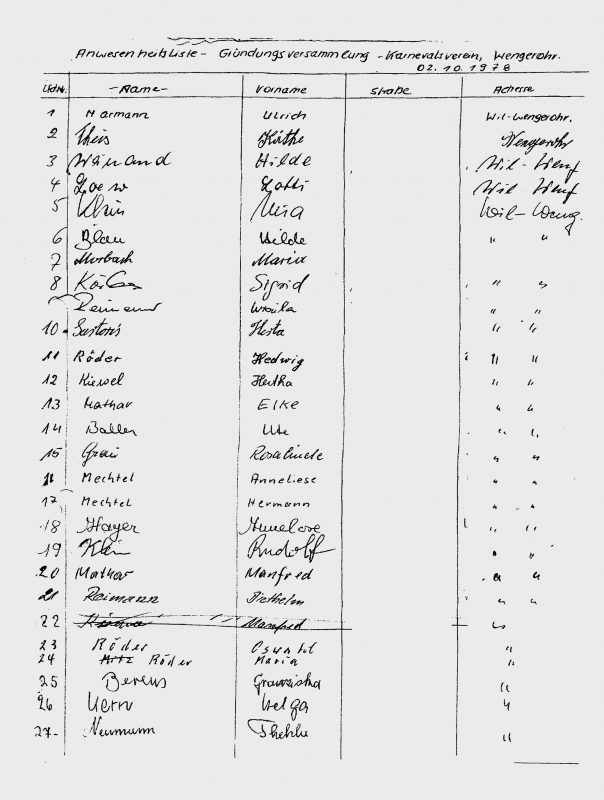 Anwesenheitsliste - Gründungsversammlung - Karnevalsverein, Wengerohr.
02.10.1978
Lfd.Nr. -Name- Vorname Straße Adresse
1 Harmann Ulrich Wil-Wengerohr.
2 Theis Käthe Wengerohr
3 Hilde Wil-Weng
4 Loew Lotti Wil-Weng
5 Klein Mira Wil-Weng.
6 Blau Hilde " "
7 Morbach Maria
8 Sigrid " "
Reimann Ursula " "
10. Sartoris Herta " "
11 Röder Hedwig " "
12 Kiewel Hertha " "
13 Mathar Elke " "
14 Ballen Ute " "
15 Grau Rosalinde " "
Mechtel Anneliese " "
17 Mechtel Hermann " "
18 Hayer Annelore " "
19 Klein Rudolf " "
20 Mathar Manfred " "
21 Reimann Diethelm " "
22 Manfred "
23 Röder Oswald "
24 Röder Maria "
25 Berens Franziska "
26 Kern Helga "
27- Neumann Thekla "